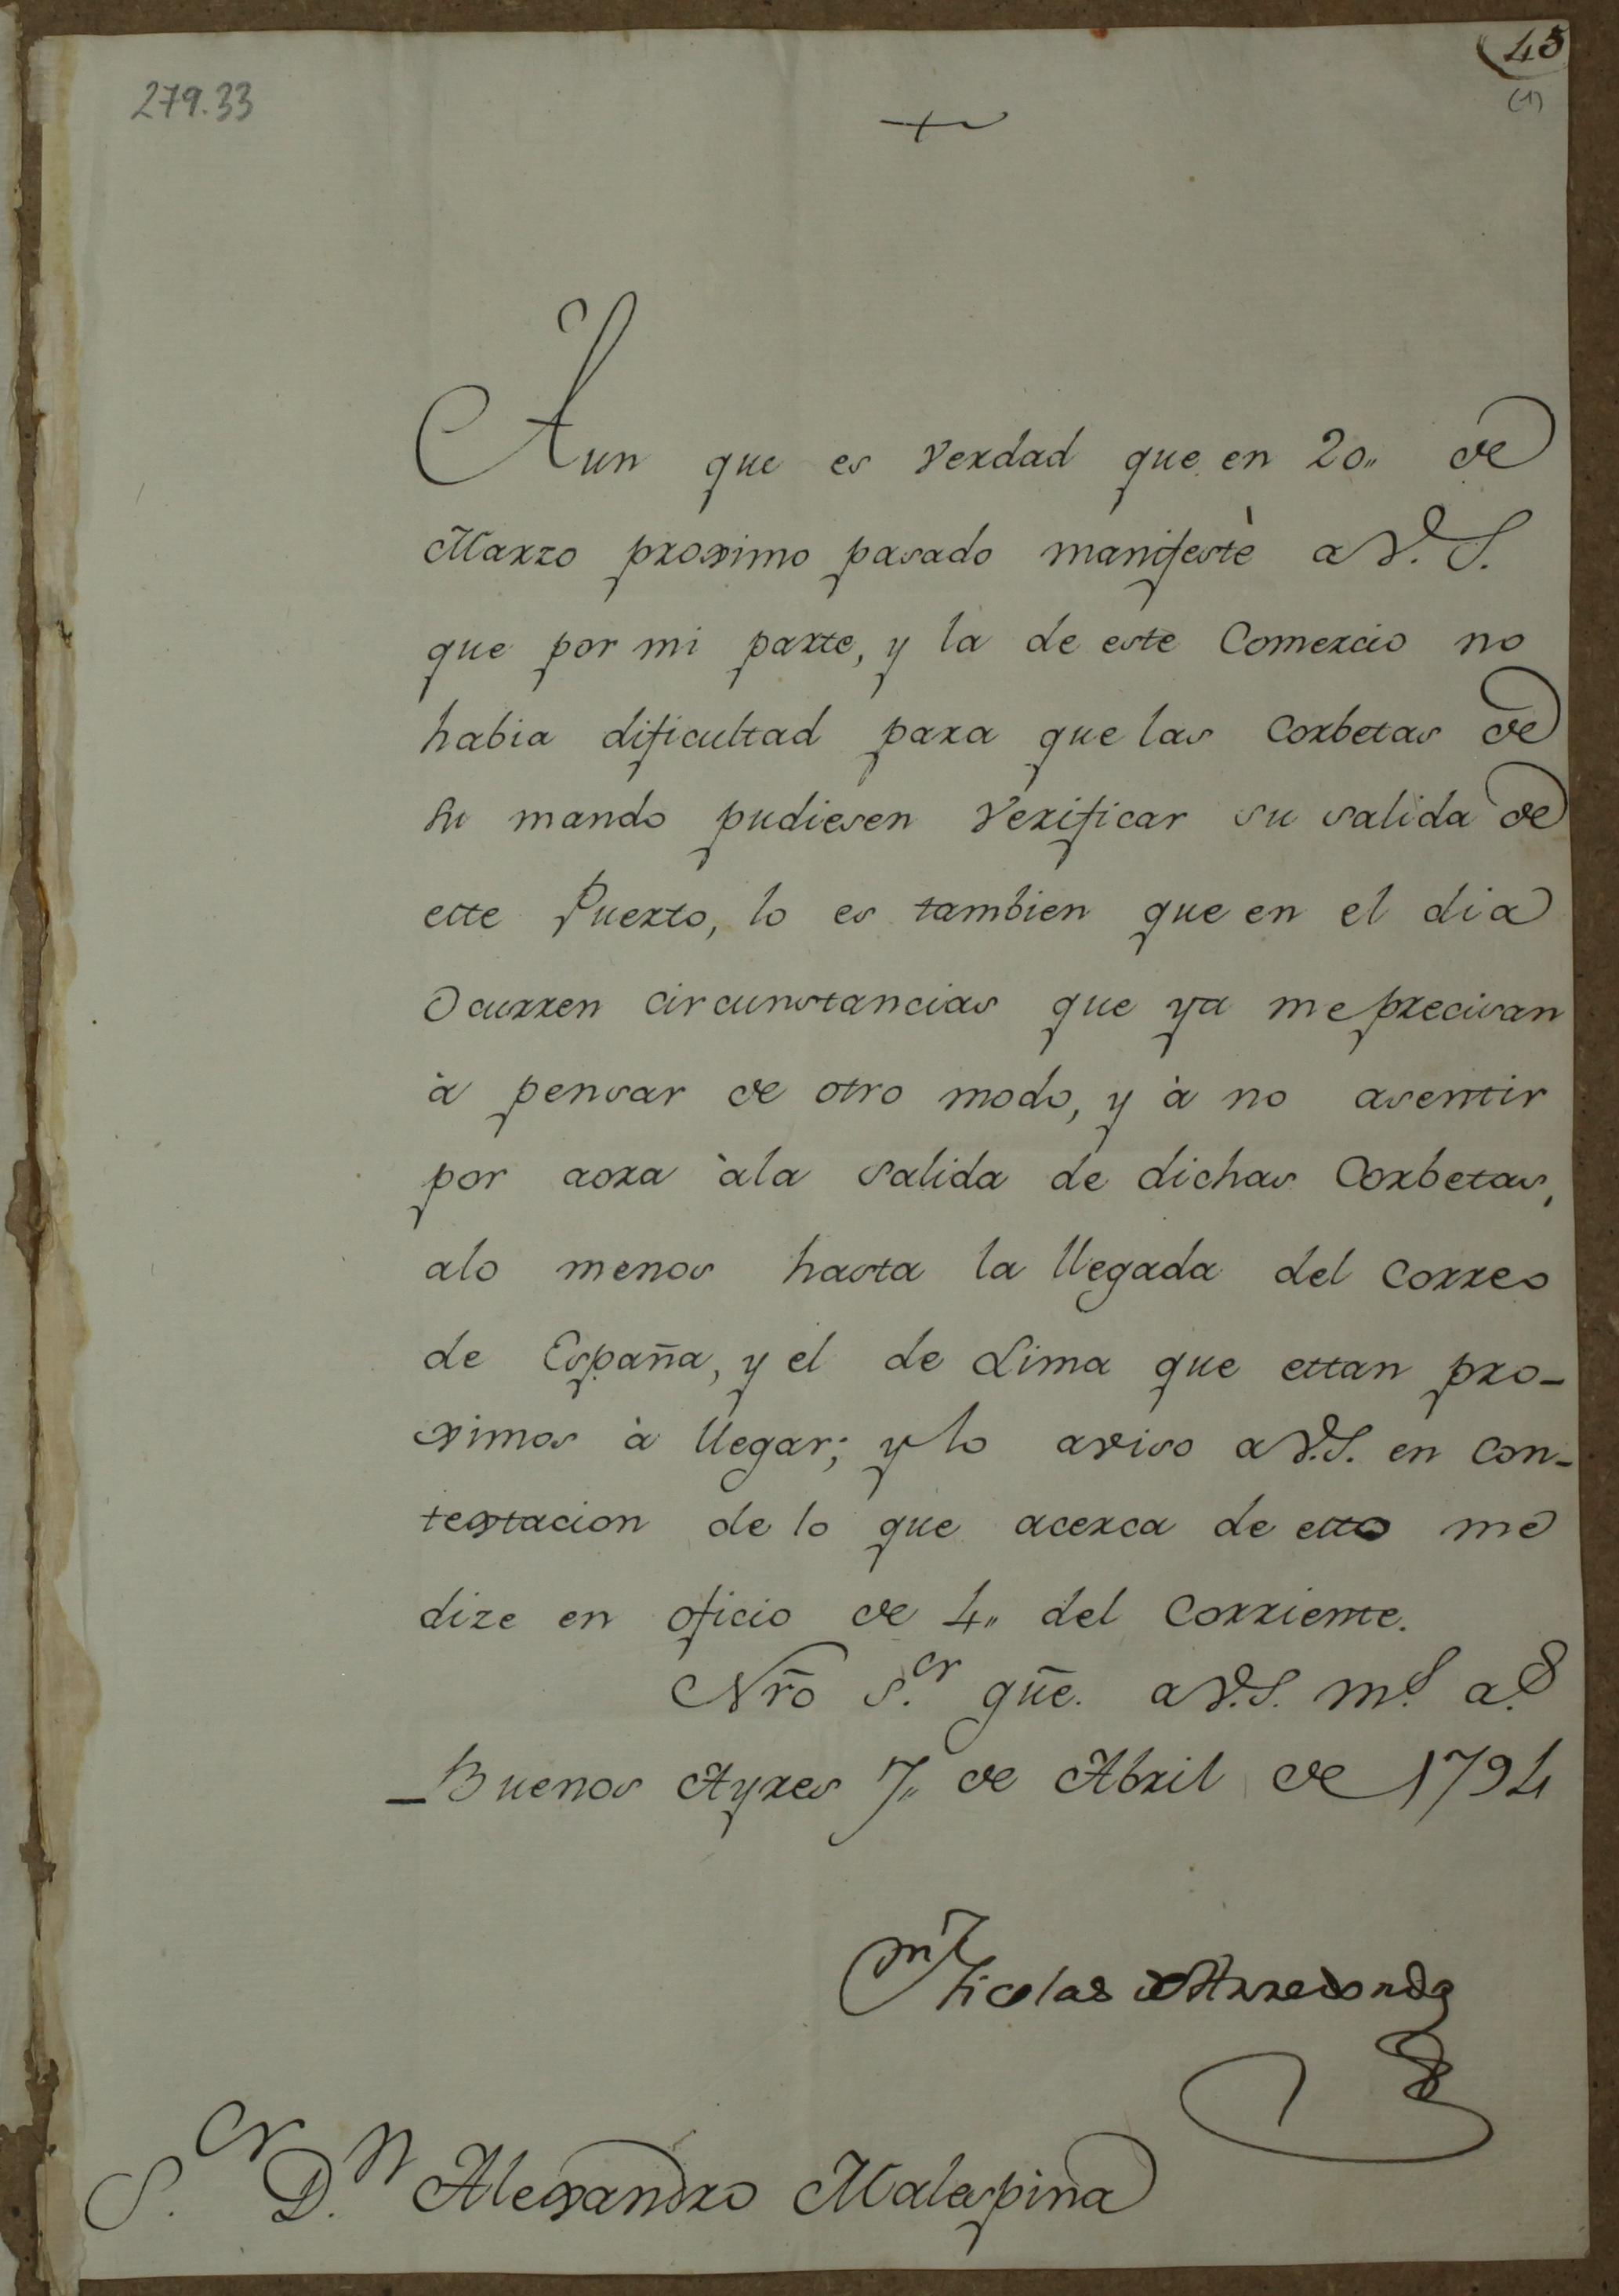 45
(1)
279.33
Aun que es verdad que en 20,, de
Marzo proximo pasado manifestè a V. S.
que por mi parte, y la de este Comercio no
habia dificultad para que las corbetas de
su mando pudiesen verificar su salida de
este Puerto, lo es tambien que en el dia
ocurren circunstancias que ya me precisan
à pensar de otro modo, y à no asentir
por aora àla salida de dichas Corbetas,
alo menos hasta la llegada del correo
de España, y el de Lima que estan pro-
ximos à llegar; y lo aviso a V.S. en con-
textacion de lo que acerca de esto me
dize en oficio de 4,, del corriente.
Nrõ S.or gũe. a V.S. m.s a.s
Buenos Ayres 7,, de Abril de 1794
Nicolas de Arredondo
S.or D.n Alexandro Malaspina